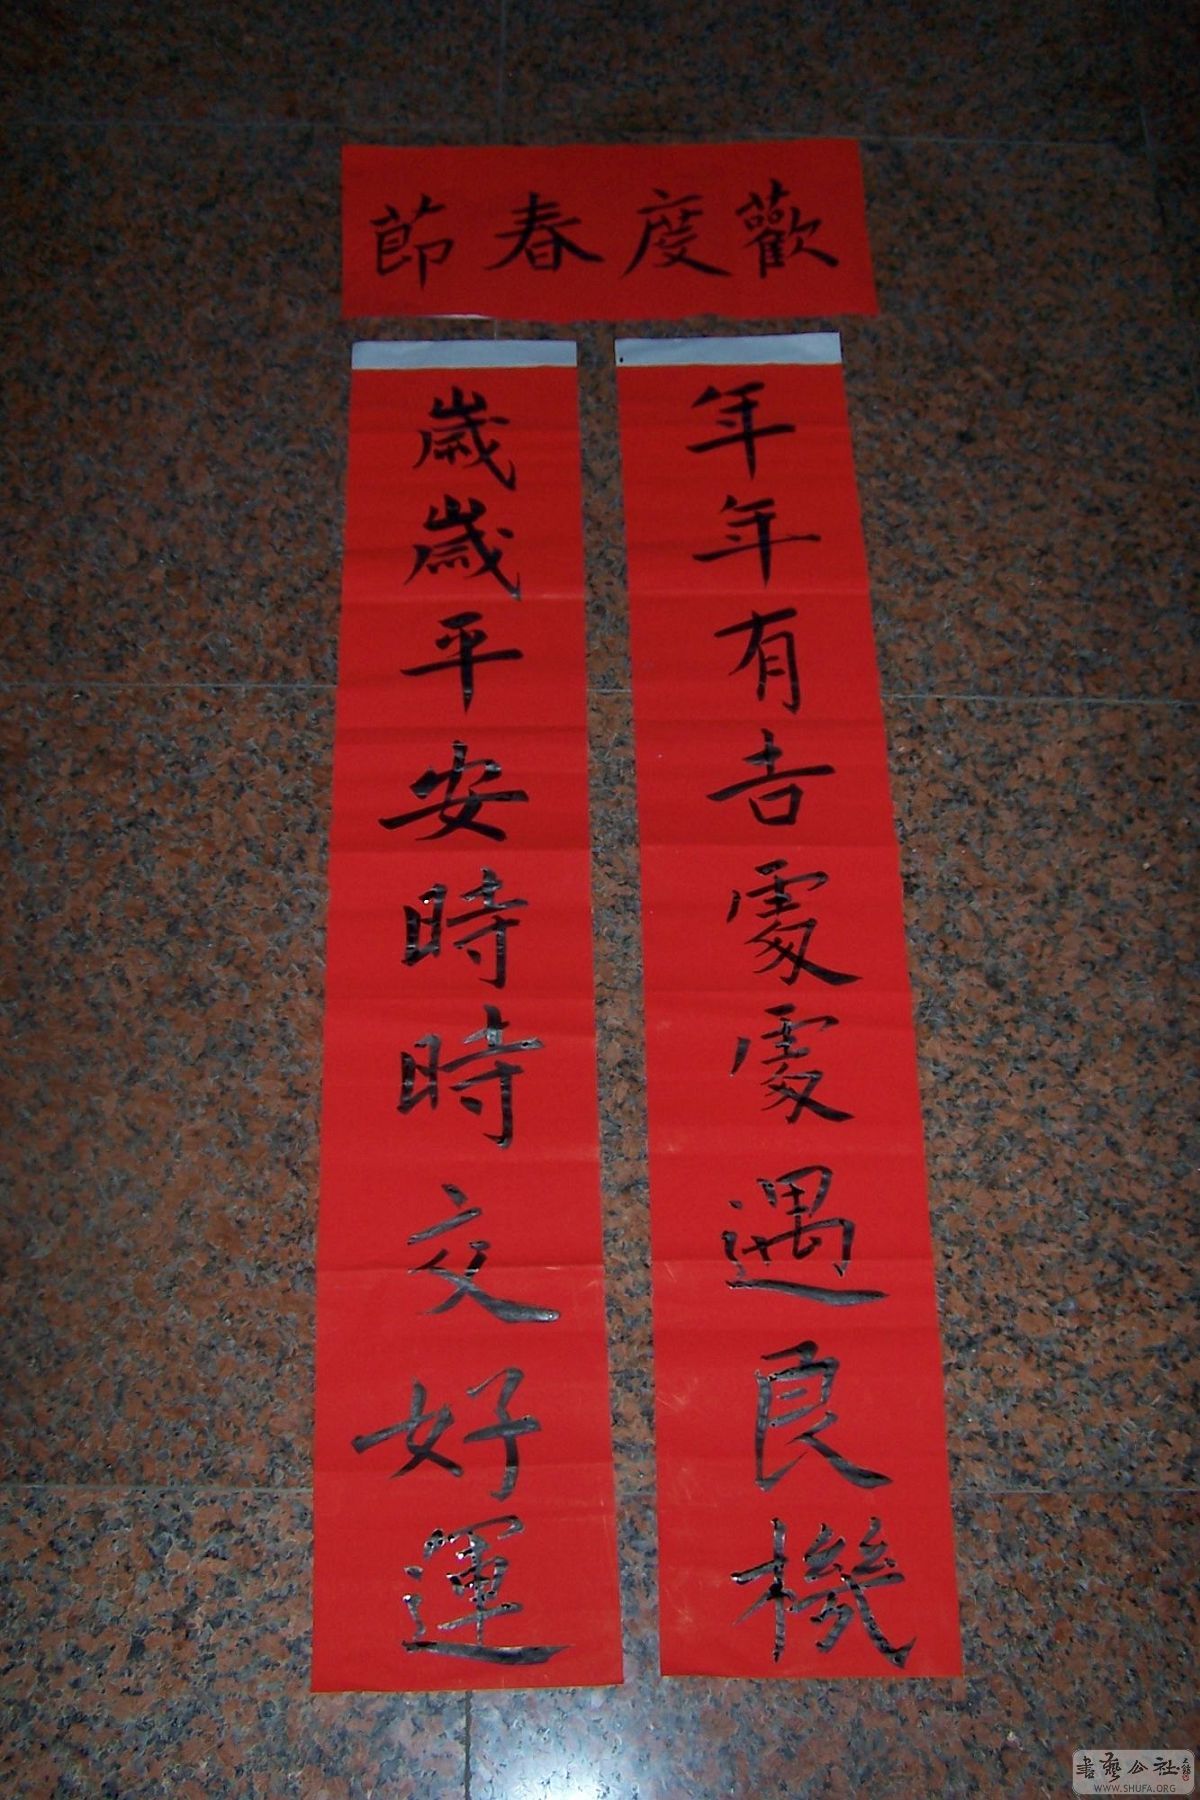 歡度春節
年年有吉處處遇良機
歲歲平安時時交好運
書藝公社
WWW.SHUFA.ORG